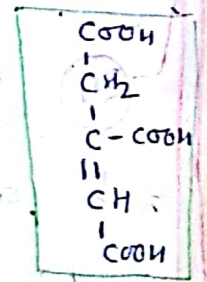 COOH
CH2
C-COOH
CH
COOH